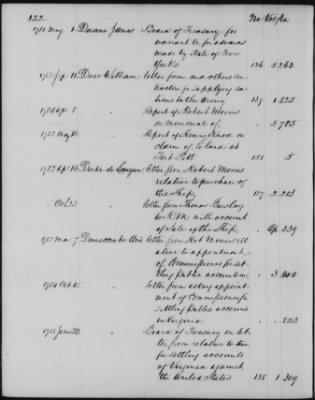 122 No Vol Pa
1788 May 1 Duane James Board of Treasury for
warrant to, for advances
made by State of New
York 136 5 263
Duer William letter from, and others con-
tractors for supplying ra-
tions to the Army 137 1 825
1784 Apr 8 " Report of Robert Morris
on memorial of " 3 785
" Report of Henry Knox on
claim of to land at
Fort Pitt 5
1782 Apl 16 letter from Robert Morris
relative to purchase of
the Ship 137 2 223
Oct 23 " letter from Thomas Barclay
to R. M. with account
of Sale of the Ship. " Ap 339
Mar 7 Dunscombe letter from Robt Morris rel-
ative to appointment
of Commissioner for set-
tling public accounts " 3
1784 Oct " letter from asking appoint-
ment of Commissioner for
settling public accounts
in Virginia "
1788 June 23 " Board of Treasury on let-
ter from relative to
settling accounts
of Virginia against
the United States 138 1 309